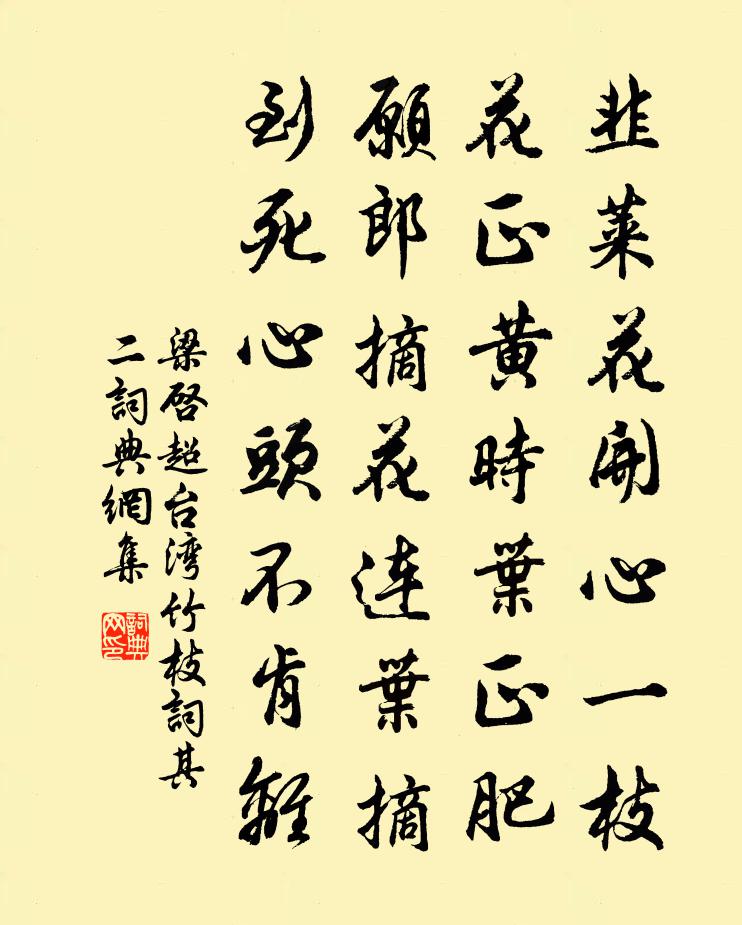 韭菜花開心一枝
花正黃時葉正肥
願郎摘花連葉摘
到死心頭不肯離
梁啓超台灣竹枝詞其
二詞典網集
詞典
网印